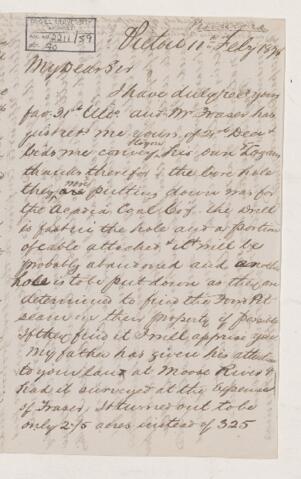 Pictou 11th Feby 1874
My Dear Sir
I have duly recd your
fav 31st Ulto. and Mr Fraser has
just sent me yours of 2nd Decr &
begs me convey to you his own &
thanks therefor. the bore hole
they were putting down was for
the Acadia Coal Coy. the Drill
is fast in the hole and a portion
of cable attached. It will be
probably abandoned and another
hole is to be put down as they are
determined to find the Ford Pit
seam on their property if possible
If they find it I will apprise you
My father has given his attention
to your land at Moose River &
had it surveyed at the expense
of Fraser, It turned out to be
only 215 acres instead of 325